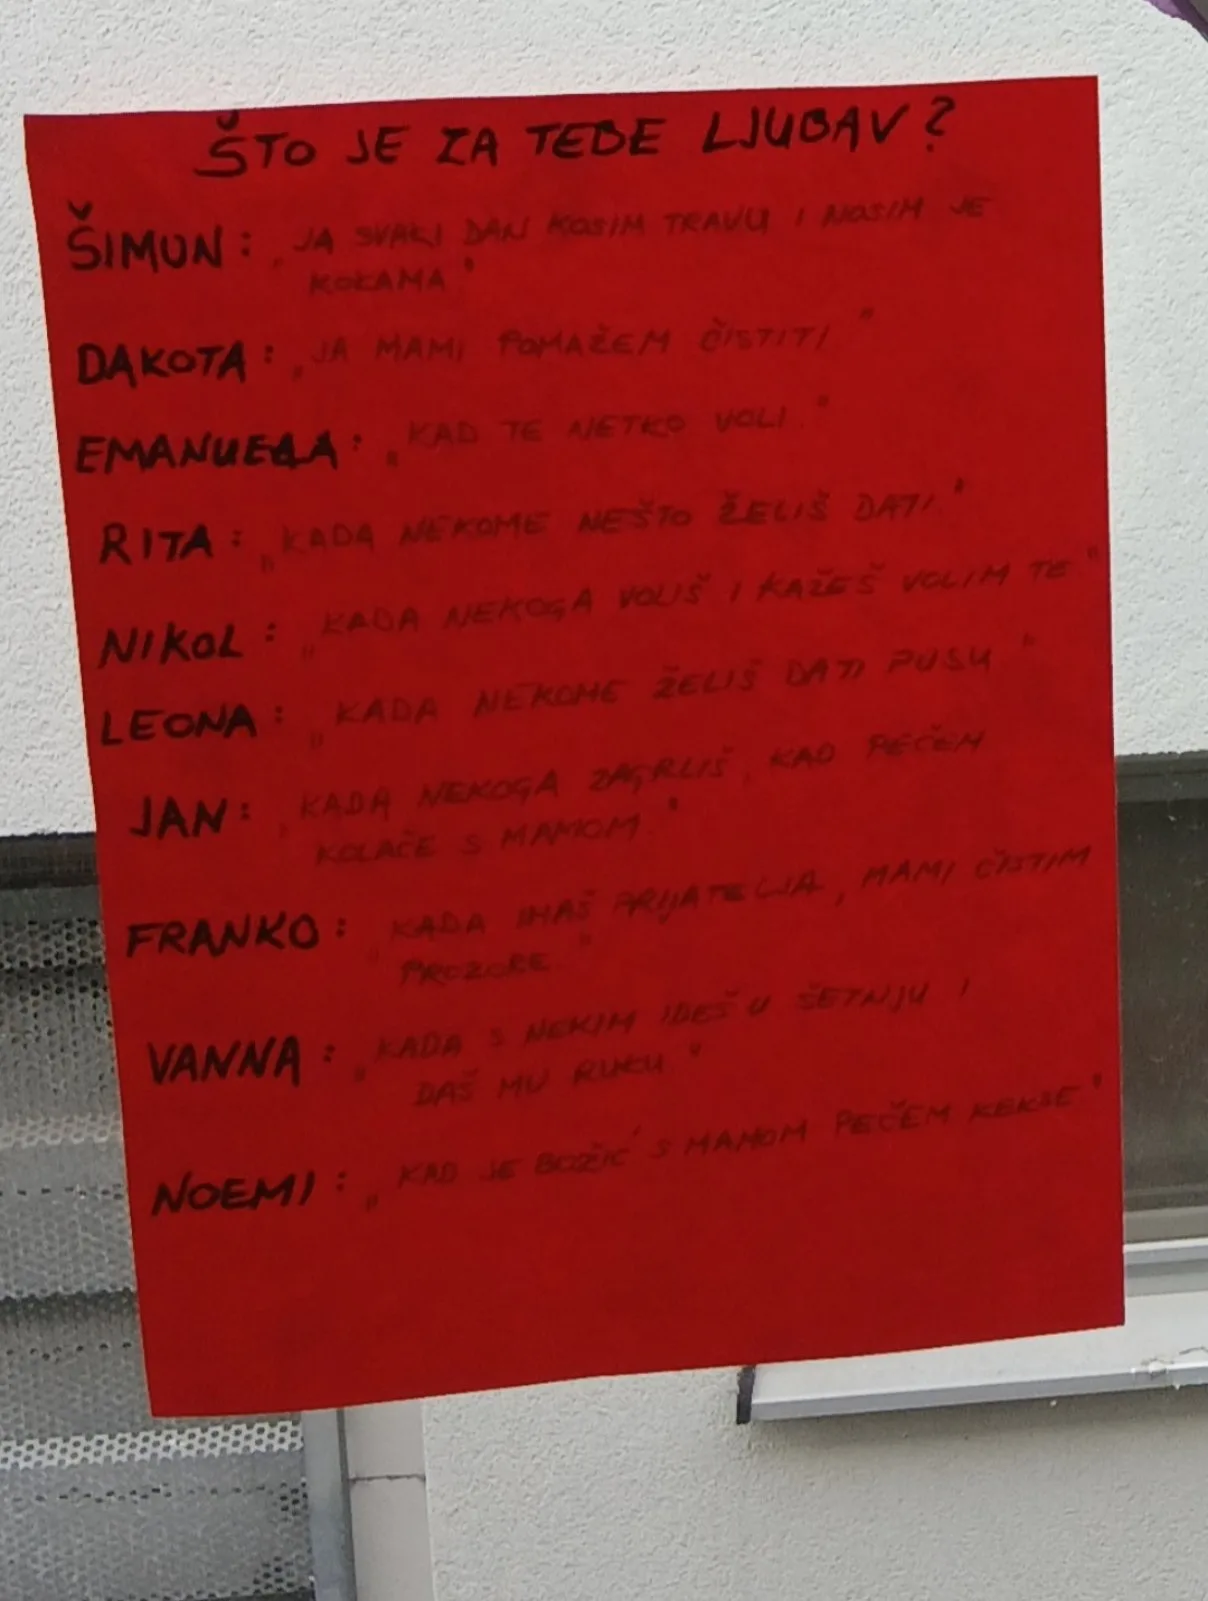 ŠTO JE ZA TEBE LJUBAV?
ŠIMUN: „JA SVAKI DAN KOSIM TRAVU I NOSIM JE
KOKAMA"
DAKOTA: „JA MAMI POMAŽEM ČISTITI"
EMANUELA: „KAD TE NETKO VOLI"
RITA: „KADA NEKOME NEŠTO ŽELIŠ DATI"
NIKOL: „KADA NEKOGA VOLIŠ I KAŽEŠ VOLIM TE"
LEONA: „KADA NEKOME ŽELIŠ DATI PUSU"
JAN: „KADA NEKOGA ZAGRLIŠ, KAD PEČEM
KOLAČE S MAMOM"
FRANKO: „KADA IMAŠ PRIJATELJA, MAMI ČISTIM
PROZORE"
VANNA: „KADA S NEKIM IDEŠ U ŠETNJU I
DAŠ MU RUKU"
NOEMI: „KAD JE BOŽIĆ S MAMOM PEČEM KEKSE"